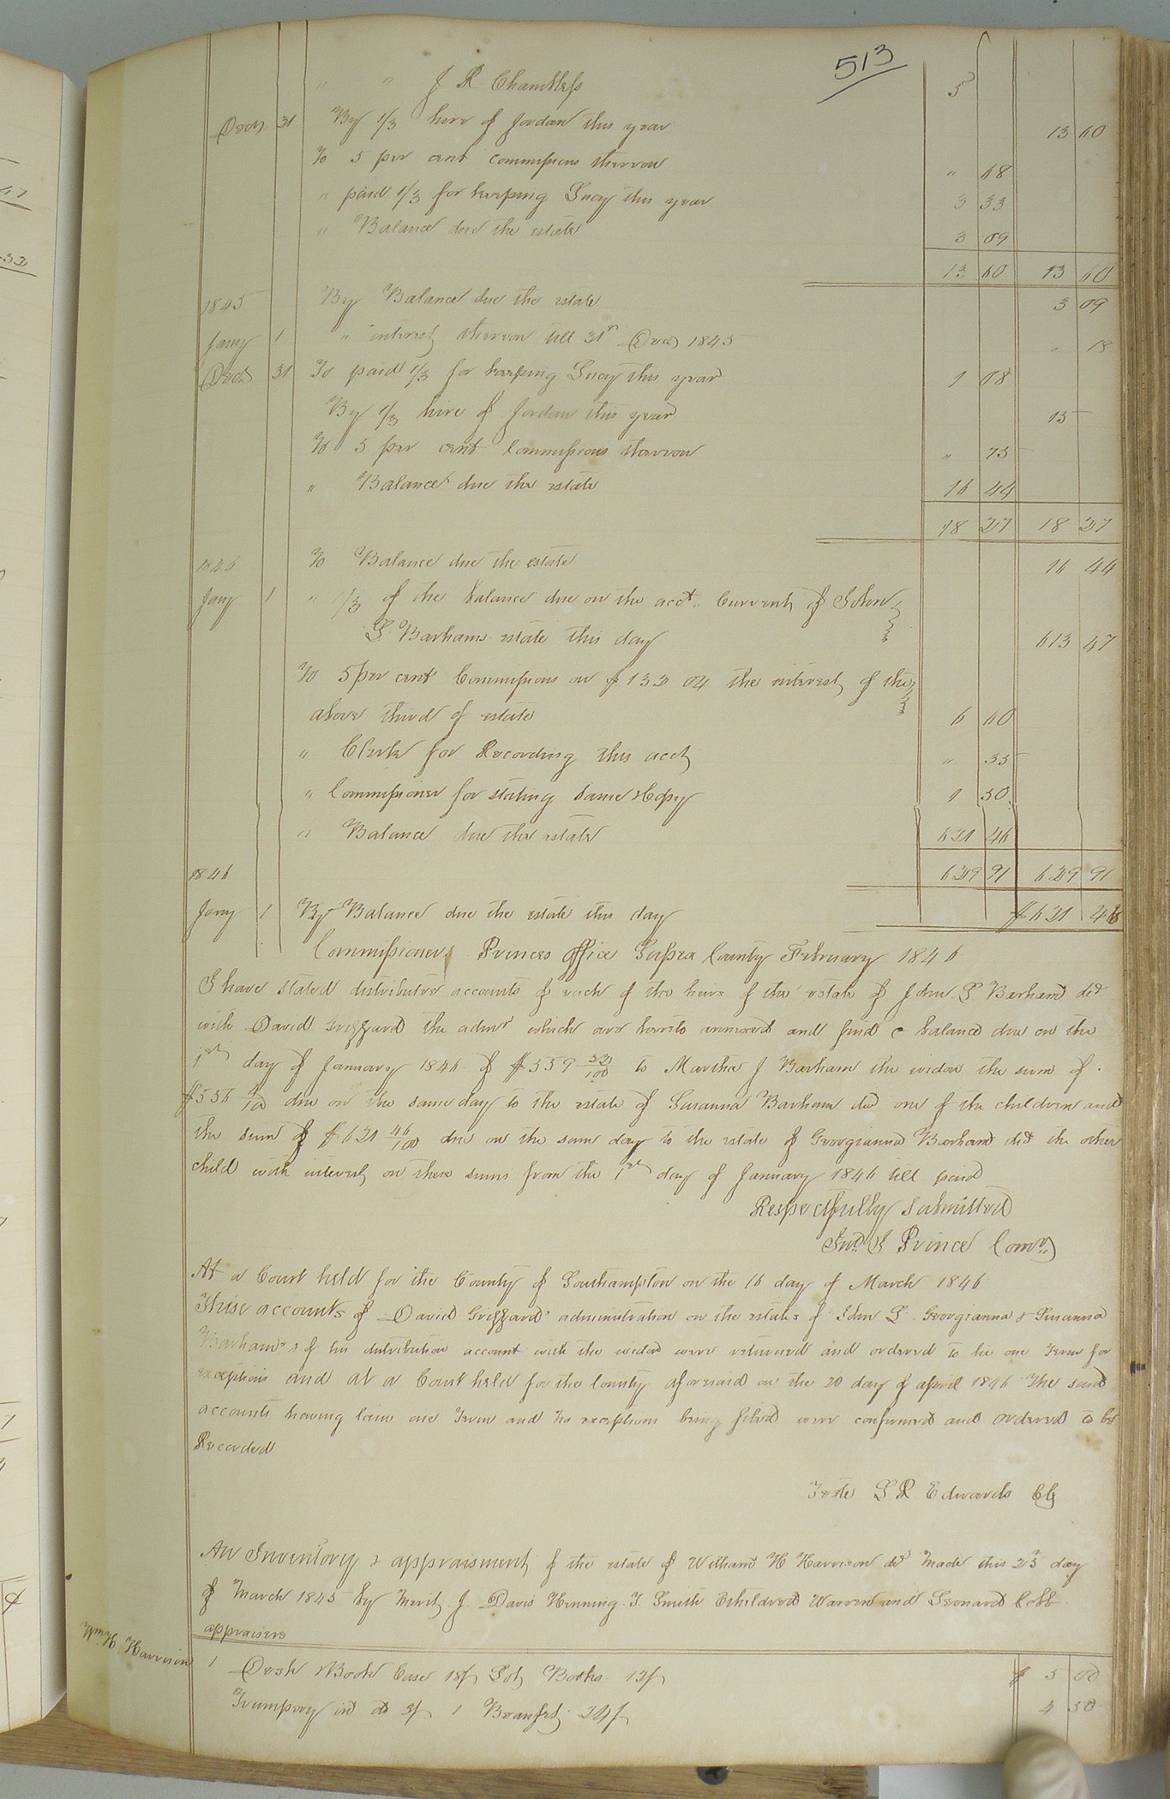 513
" " J R Chambliss 5
Decr 31 By 1/3 hire of Jordan this year 13 60
To 5 per cent commissions thereon " 68
" paid 1/3 for keeping Lucy this year 3 33
" Balance due the estate 3 09
13 60 13 60
1845 By Balance due the estate 3 09
Jany 1 " interest thereon till 31st Decr 1845 " 18
Decr 31 To paid 1/3 for keeping Lucy this year 1 08
By 1/3 hire of Jordan this year 15
To 5 per cent Commissions thereon " 75
" Balance due the estate 16 44
18 27 18 27
1846 To Balance due the estate 16 44
Jany 1 " 1/3 of the balance due on the acct. Current of John
S Barhams estate this day 613 47
To 5 per cent Commissions on $132 04 the interest of the
above third of estate 6 60
" Clerk for Recording this acct " 35
" Commissioner for stating same & Copy 1 50
" Balance due the estate 621 46
1846 629 91 629 91
Jany 1 By Balance due the estate this day $621 46
Commissioner Princes office Sussex County February 1846
I have stated distributive accounts of each of the heirs of the estate of John S Barham decd
with David Griggard the admr which are hereto annexed and find a balance due on the
1st day of January 1846 of $559 32/100 to Martha J Barham the widow the sum of
$556 /100 due on the same day to the estate of Susanna Barham decd one of the children and
the sum of $621 46/100 due on the same day to the estate of Georgianna Barham decd the other
child with interest on these sums from the 1st day of January 1846 till paid
Respectfully Submitted
Jno. J Prince Comr.
At a Court held for the County of Southampton on the 16 day of March 1846
These accounts of David Griggard's administration on the estates of John S. Georgianna & Susanna
Barham & of his distribution account with the widow were returned and ordered to lie one Term for
exceptions and at a Court held for the County aforesaid on the 20 day of April 1846 The said
accounts having lain one Term and no exceptions being filed were confirmed and ordered to be
Recorded
Teste L R Edwards Clk
An Inventory & appraisment of the estate of William H Harrison decd made this 25 day
of March 1845 by Merit J. Davis Henning T. Smith Etheldred Warren and Leonard Cobb
appraisers
Wm H Harrison
1 Desk & Book Case 18/ Lot Books 12/ $ 5 00
Trumpery at 3/ 1 24/ 4 50